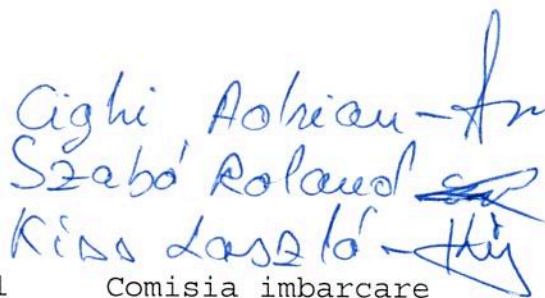 Cighi Adrian -
Szabó Roland
Kiss László -
Comisia imbarcare